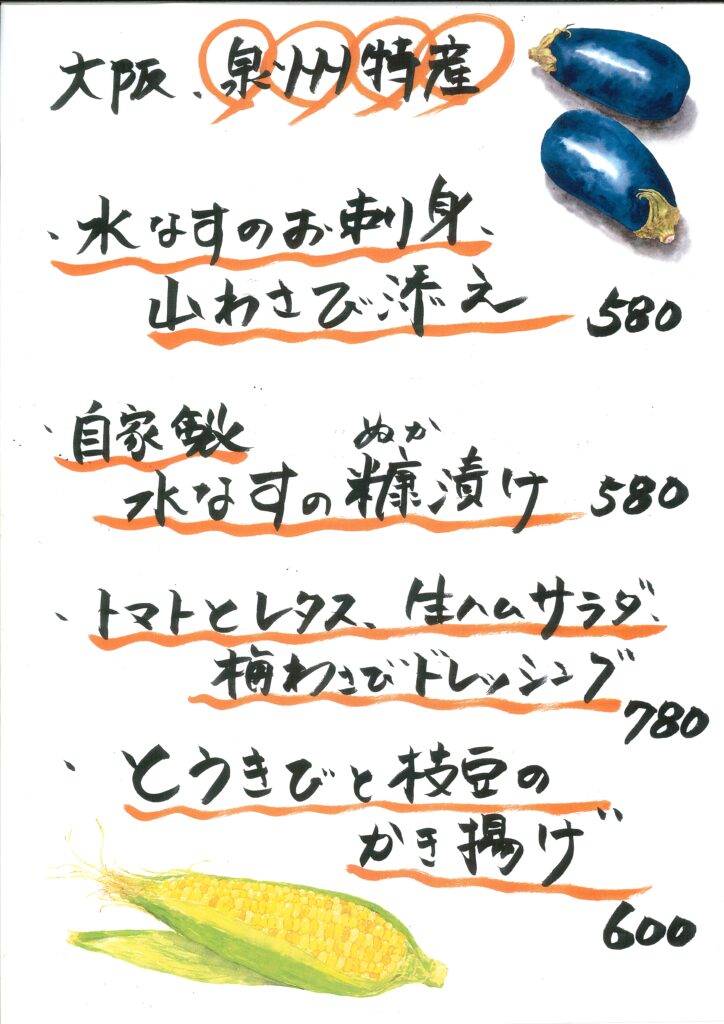 大阪、泉州特産
、水なすのお刺身、
山わさび添え 580
、自家製
ぬか
水なすの糠漬け 580
、トマトとレタス、生ハムサラダ、
梅わさびドレッシング
780
、とうきびと枝豆の
かき揚げ
600